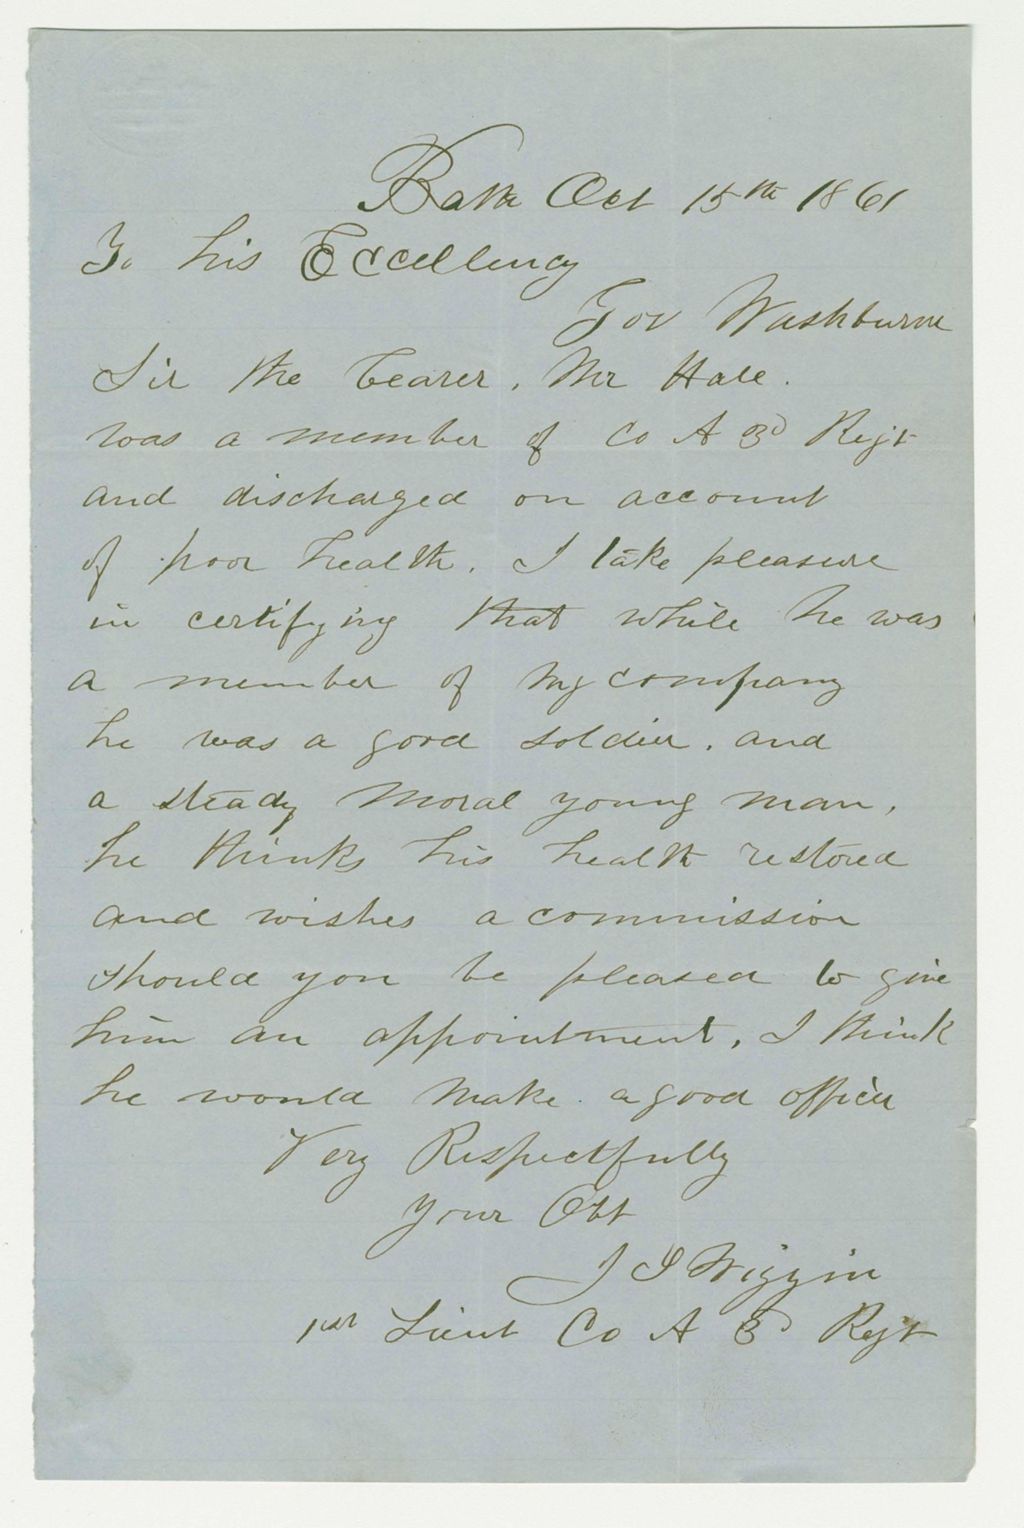 Bath Oct 15th 1861
To his Excellency
Gov Washburne
Sir the bearer, Mr Hale.
was a member of Co A 3d Regt
and discharged on account
of poor health. I take pleasure
in certifying that while he was
a member of my company
he was a good soldier. and
a steady moral young man,
he thinks his health restored
and wishes a commission
should you be pleased to give
him an appointment, I think
he would make a good officer
Very Respectfully
Your Obt
Wiggin
1st Lieut Co A 3d Regt